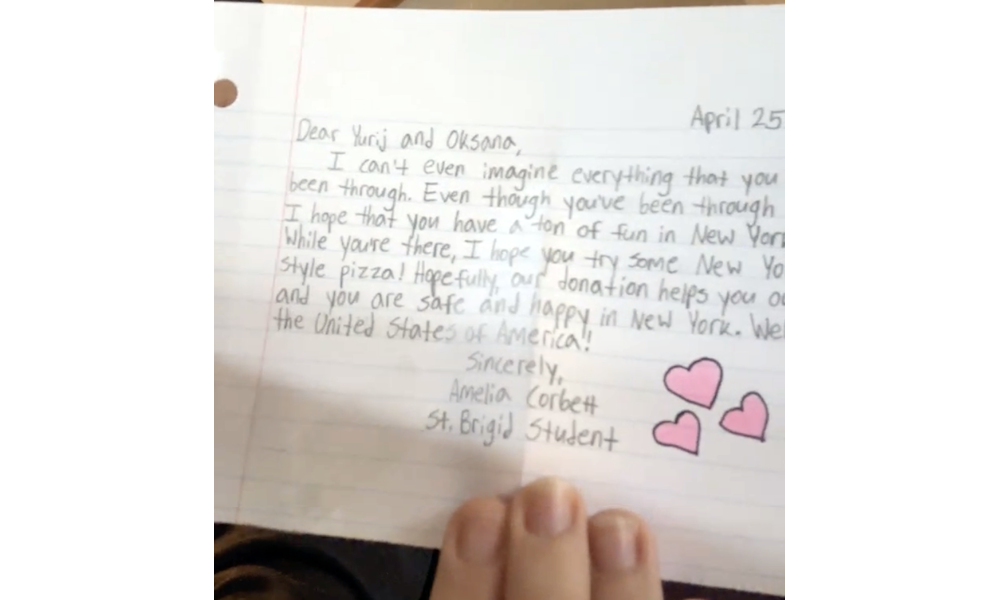 April 25
Dear Yurij and Oksana,
I can't even imagine everything that you
been through. Even though you've been through
I hope that you have a ton of fun in New York
While you're there, I hope you try some New Yo
style pizza! Hopefully, our donation helps you ou
and you are safe and happy in New York. We
the United States of America!
Sincerely,
Amelia Corbett
St. Brigid Student